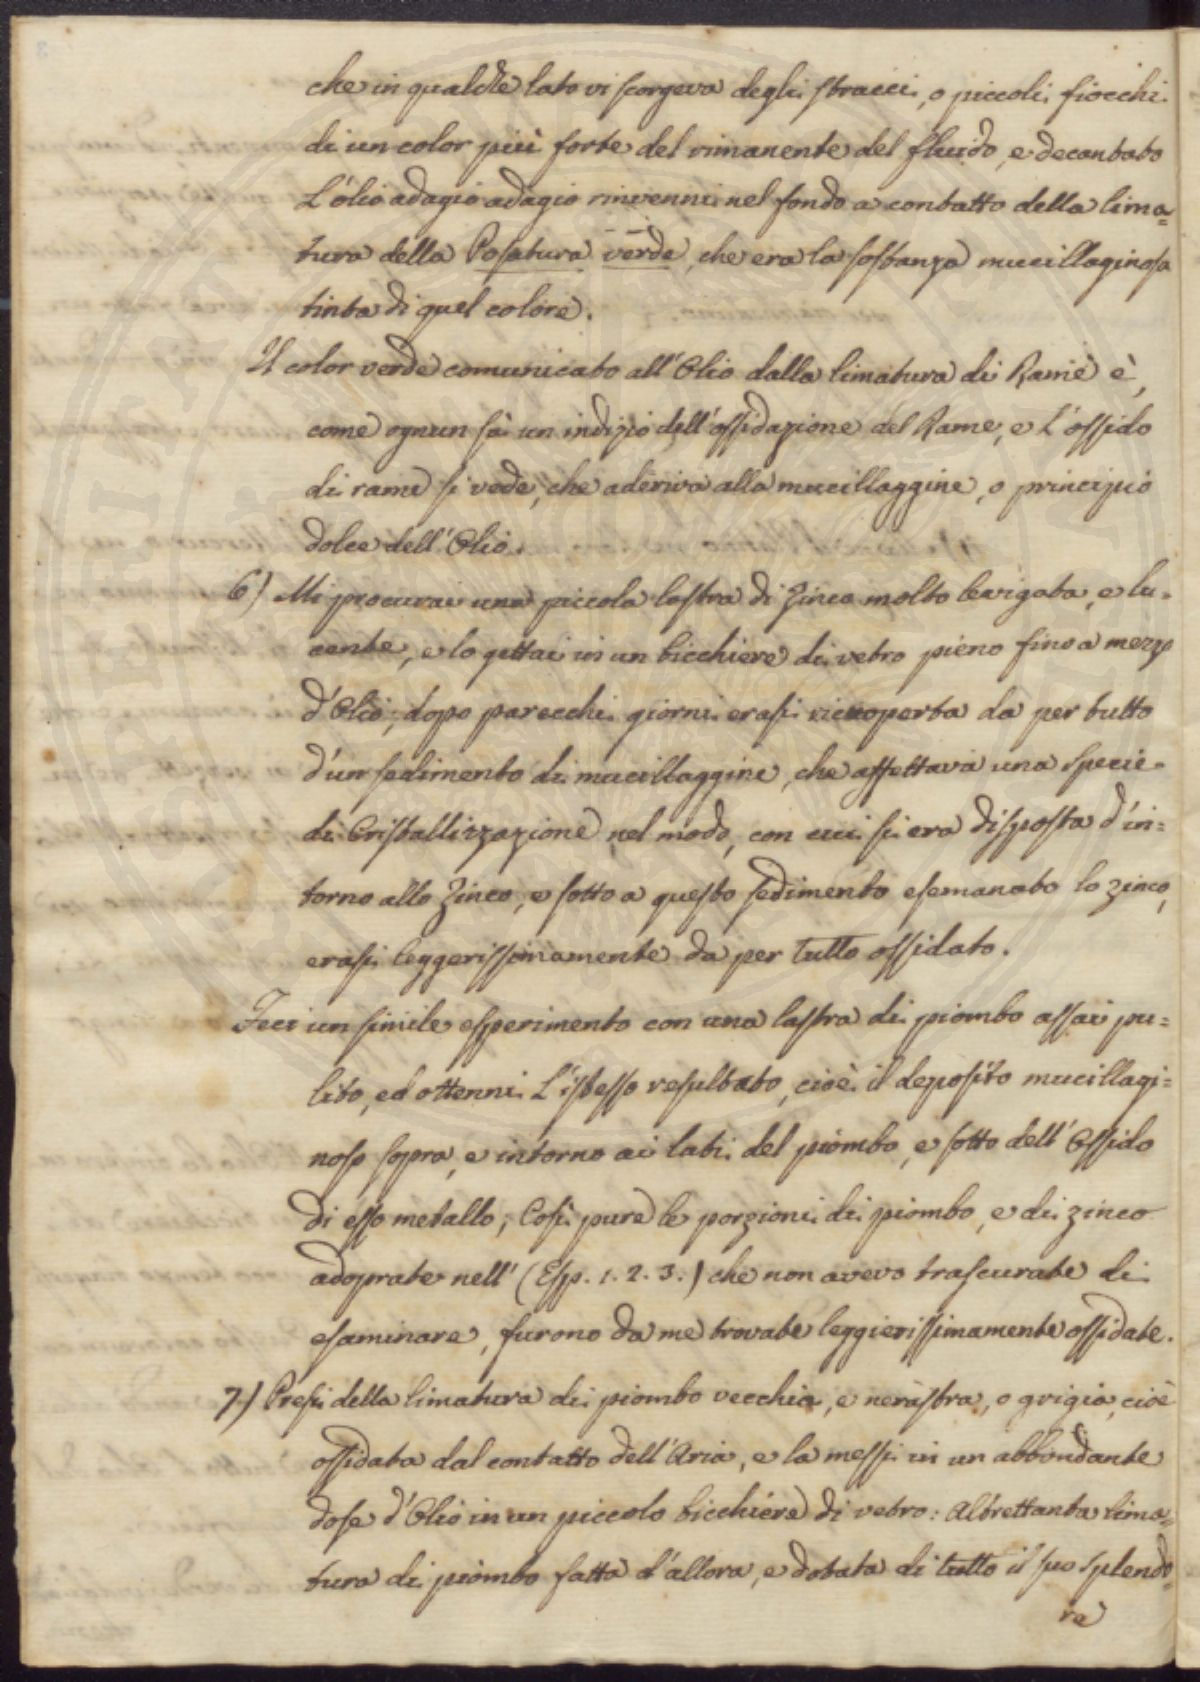 che in qualche lato vi scorgeva degli stracci, o piccoli fiocchi
di un color più forte del rimanente del fluido, e decantato
L'ólio adagio adagio rinvenni nel fondo a contatto della lima=
tura della Posatura verde, che era la sostanza mucillaginosa
tinta di quel colore.
Il color verde comunicato all'Olio dalla limatura di Rame è,
come ognun sà un indizio dell'ossidazione del Rame, e L'ossido
di rame si vede, che aderiva alla mucillaggine, o principio
dolce dell'Olio.
6) Mi procurai una piccola lastra di Zinco molto levigata, e lu=
cente, e lo gettai in un bicchiere di vetro pieno fino a mezzo
d'Olio; dopo parecchi giorni erasi ricoperta da per tutto
d'un sedimento di mucillaggine, che affettava una specie
di Cristallizzazione nel modo, con cui si era disposta d'in=
torno allo Zinco, e sotto a questo sedimento esaminato lo zinco,
erasi leggerissimamente da per tutto ossidato.
Feci un simile esperimento con una lastra di piombo assai pu=
lito, ed ottenni L'istesso resultato, cioè il deposito mucillagi=
noso sopra, e intorno ai lati del piombo, e sotto dell'Ossido
di esso metallo; Così pure le porzioni di piombo, e di zinco
adoprate nell' (Esp. 1. 2. 3.) che non avevo trascurate di
esaminare, furono da me trovate leggierissimamente ossidate.
7.) Presi della limatura di piombo vecchia, e nerastra, o grigia, cioè
ossidata dal contatto dell'Aria, e la messi in un abbondante
dose d'Olio in un piccolo bicchiere di vetro: Altrettanta lima=
tura di piombo fatta d'allora, e dotata di tutto il suo splendo=
re